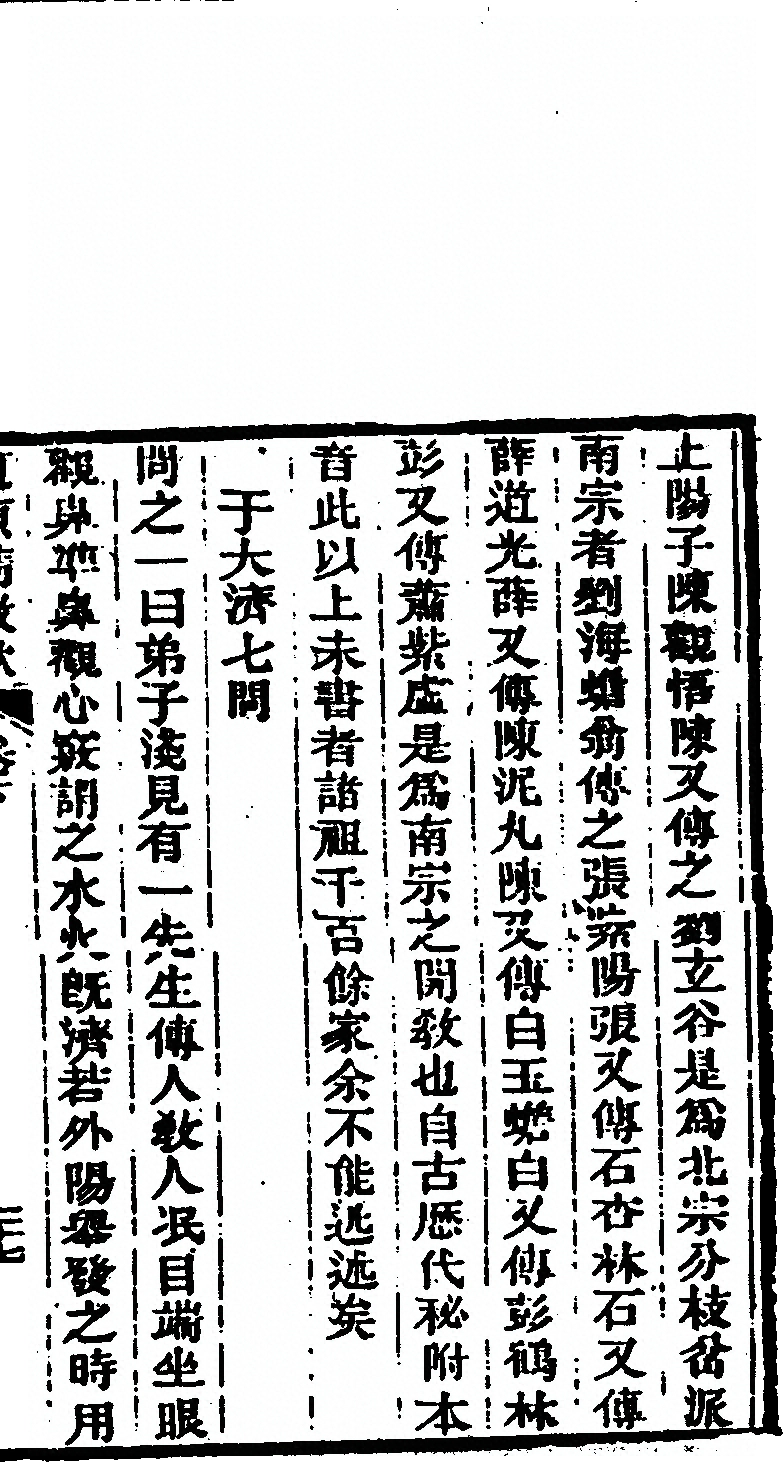 上陽子陳觀悟陳又傳之劉玄谷是爲北宗分枝岔派
南宗者劉海蟾翁傳之張紫陽張又傳石杏林石又傳
薛道光薛又傳陳泥丸陳又傳白玉蟾白又傳彭鶴林
彭又傳蕭紫虛是爲南宗之開教也自古歷代秘附本
音此以上未書者諸祖千百餘家余不能迯述矣
于大濟七問
問之一曰弟子淺見有一先生傳人教人泯目端坐眼
觀鼻準鼻觀心竅謂之水火既濟若外陽舉發之時用